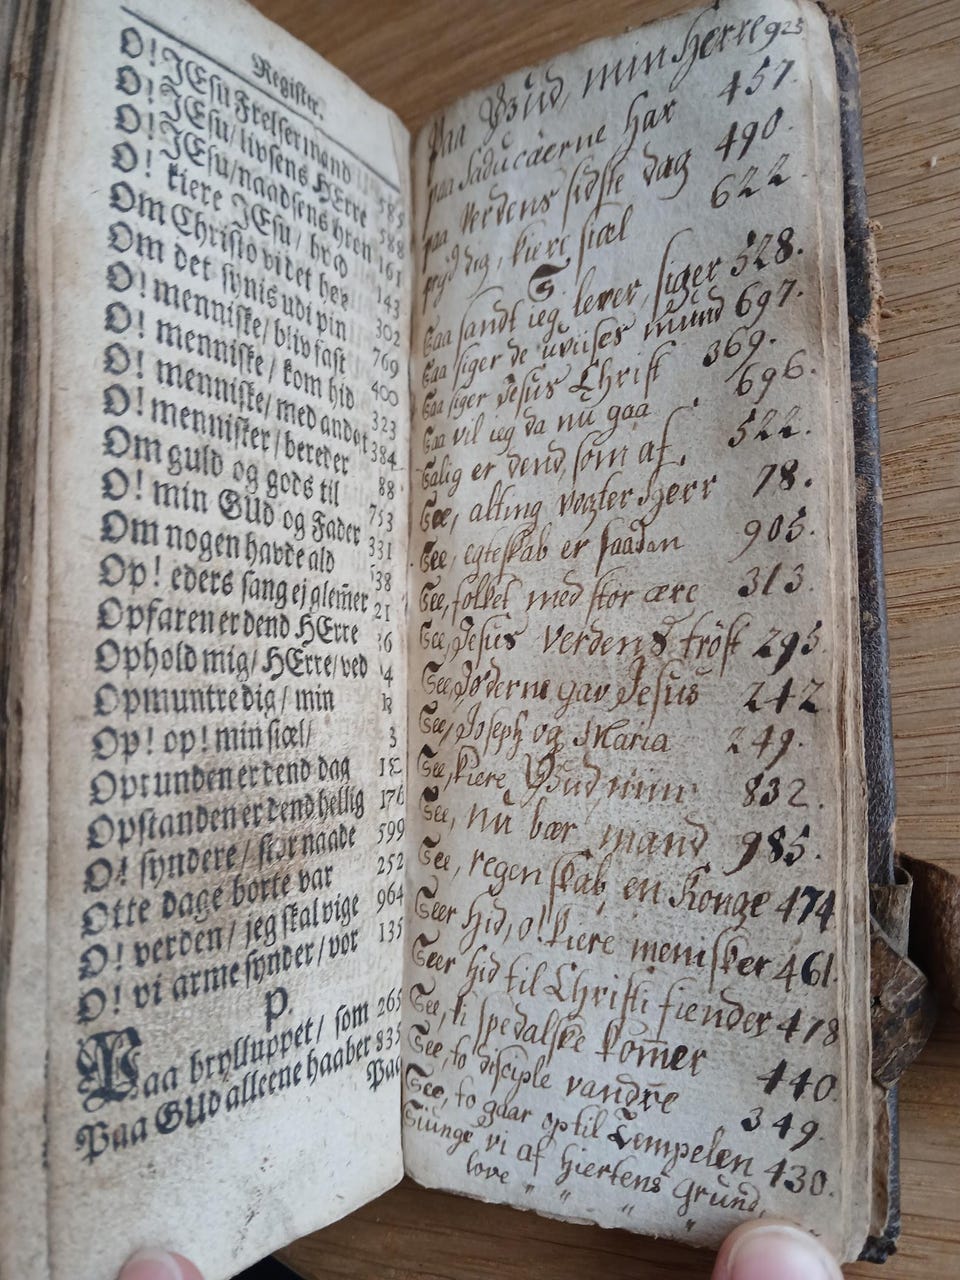 Register.
O! JEsu Frelsermand 585
O! JEsu/livsens HErre 588
O! JEsu/naadsens bren 161
O! kiere JEsu/ hvad 143
Om Christo vi det hør 302
Om det synis udi pin 769
O! menniske/ bliv fast 400
O! menniske/ kom hid 323
O! menniske/ med andagt 384
O! mennisker/ bereder 88
Om guld og gods til 753
O! min GUd og Fader 331
Om nogen havde ald 38
Op! eders sang ej glem̃er 21
Opfaren er dend HErre 36
Ophold mig/ HErre/ ved
Opmuntre dig/ min
Op! op! min siæl/ 3
Oprunden er dend dag
Opstanden er dend hellig 176
O! syndere/ stor naade 599
Otte dage borte var 252
O! verden/ jeg skal vige 964
O! vi arme synder/ vor 135
P.
Paa brylluppet/ som 265
Paa GUd alleene haaber 835
Paa
Paa Gud, min Herre 925
paa Saducæerne har 457.
paa verdens sidste dag 490.
pryd dig, kiere siæl 622.
S.
Saa sandt ieg lever, siger 528.
Saa siger de uviises mund 697.
Saa siger Jesus Christ 369.
Saa vil ieg da nu gaa 696.
Salig er dend, som af 522.
See, alting vogter Herr 78.
See, egteskab er saadan 905.
See, folket med stor ære 313.
See, Jesus verdens trøst 295.
See, Jøderne gav Jesus 242
See, Joseph og Maria 249.
See, kiere Gud, min 832.
See, nu bær mand 985.
See, regenskab, en Konge 474
Seer hid, o! kiere menisker 461.
Seer hid til Christi fiender 478
See, ti spedalske kom̃er 440.
See, to disciple vandre 349.
See, to gaar op til Tempelen 430.
Siunge vi af hiertens grund,
love " " " "